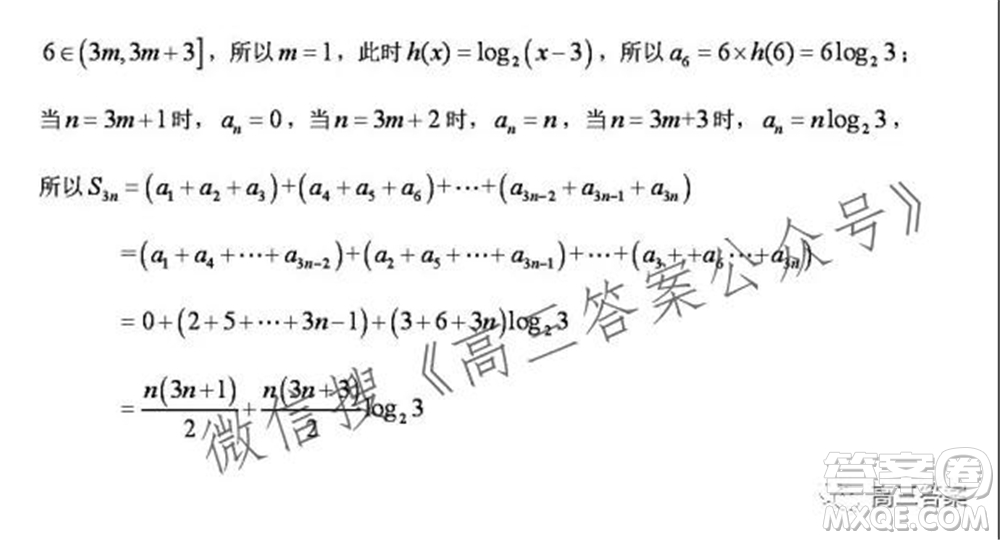 6∈(3m,3m+3]，所以m=1，此时h(x)=log₂(x−3)，所以a₆=6×h(6)=6log₂3；
当n=3m+1时，aₙ=0，当n=3m+2时，aₙ=n，当n=3m+3时，aₙ=nlog₂3，
所以S₃ₙ=(a₁+a₂+a₃)+(a₄+a₅+a₆)+⋯+(a₃ₙ₋₂+a₃ₙ₋₁+a₃ₙ)
=(a₁+a₄+⋯+a₃ₙ₋₂)+(a₂+a₅+⋯+a₃ₙ₋₁)+⋯+(a₃++a₆⋯+a₃ₙ)
=0+(2+5+⋯+3n−1)+(3+6+3n)log₂3
=n(3n+1)/2+n(3n+3)/2log₂3
微信搜《高三答案公众号》
高三答案
答案圈
MXQE.COM